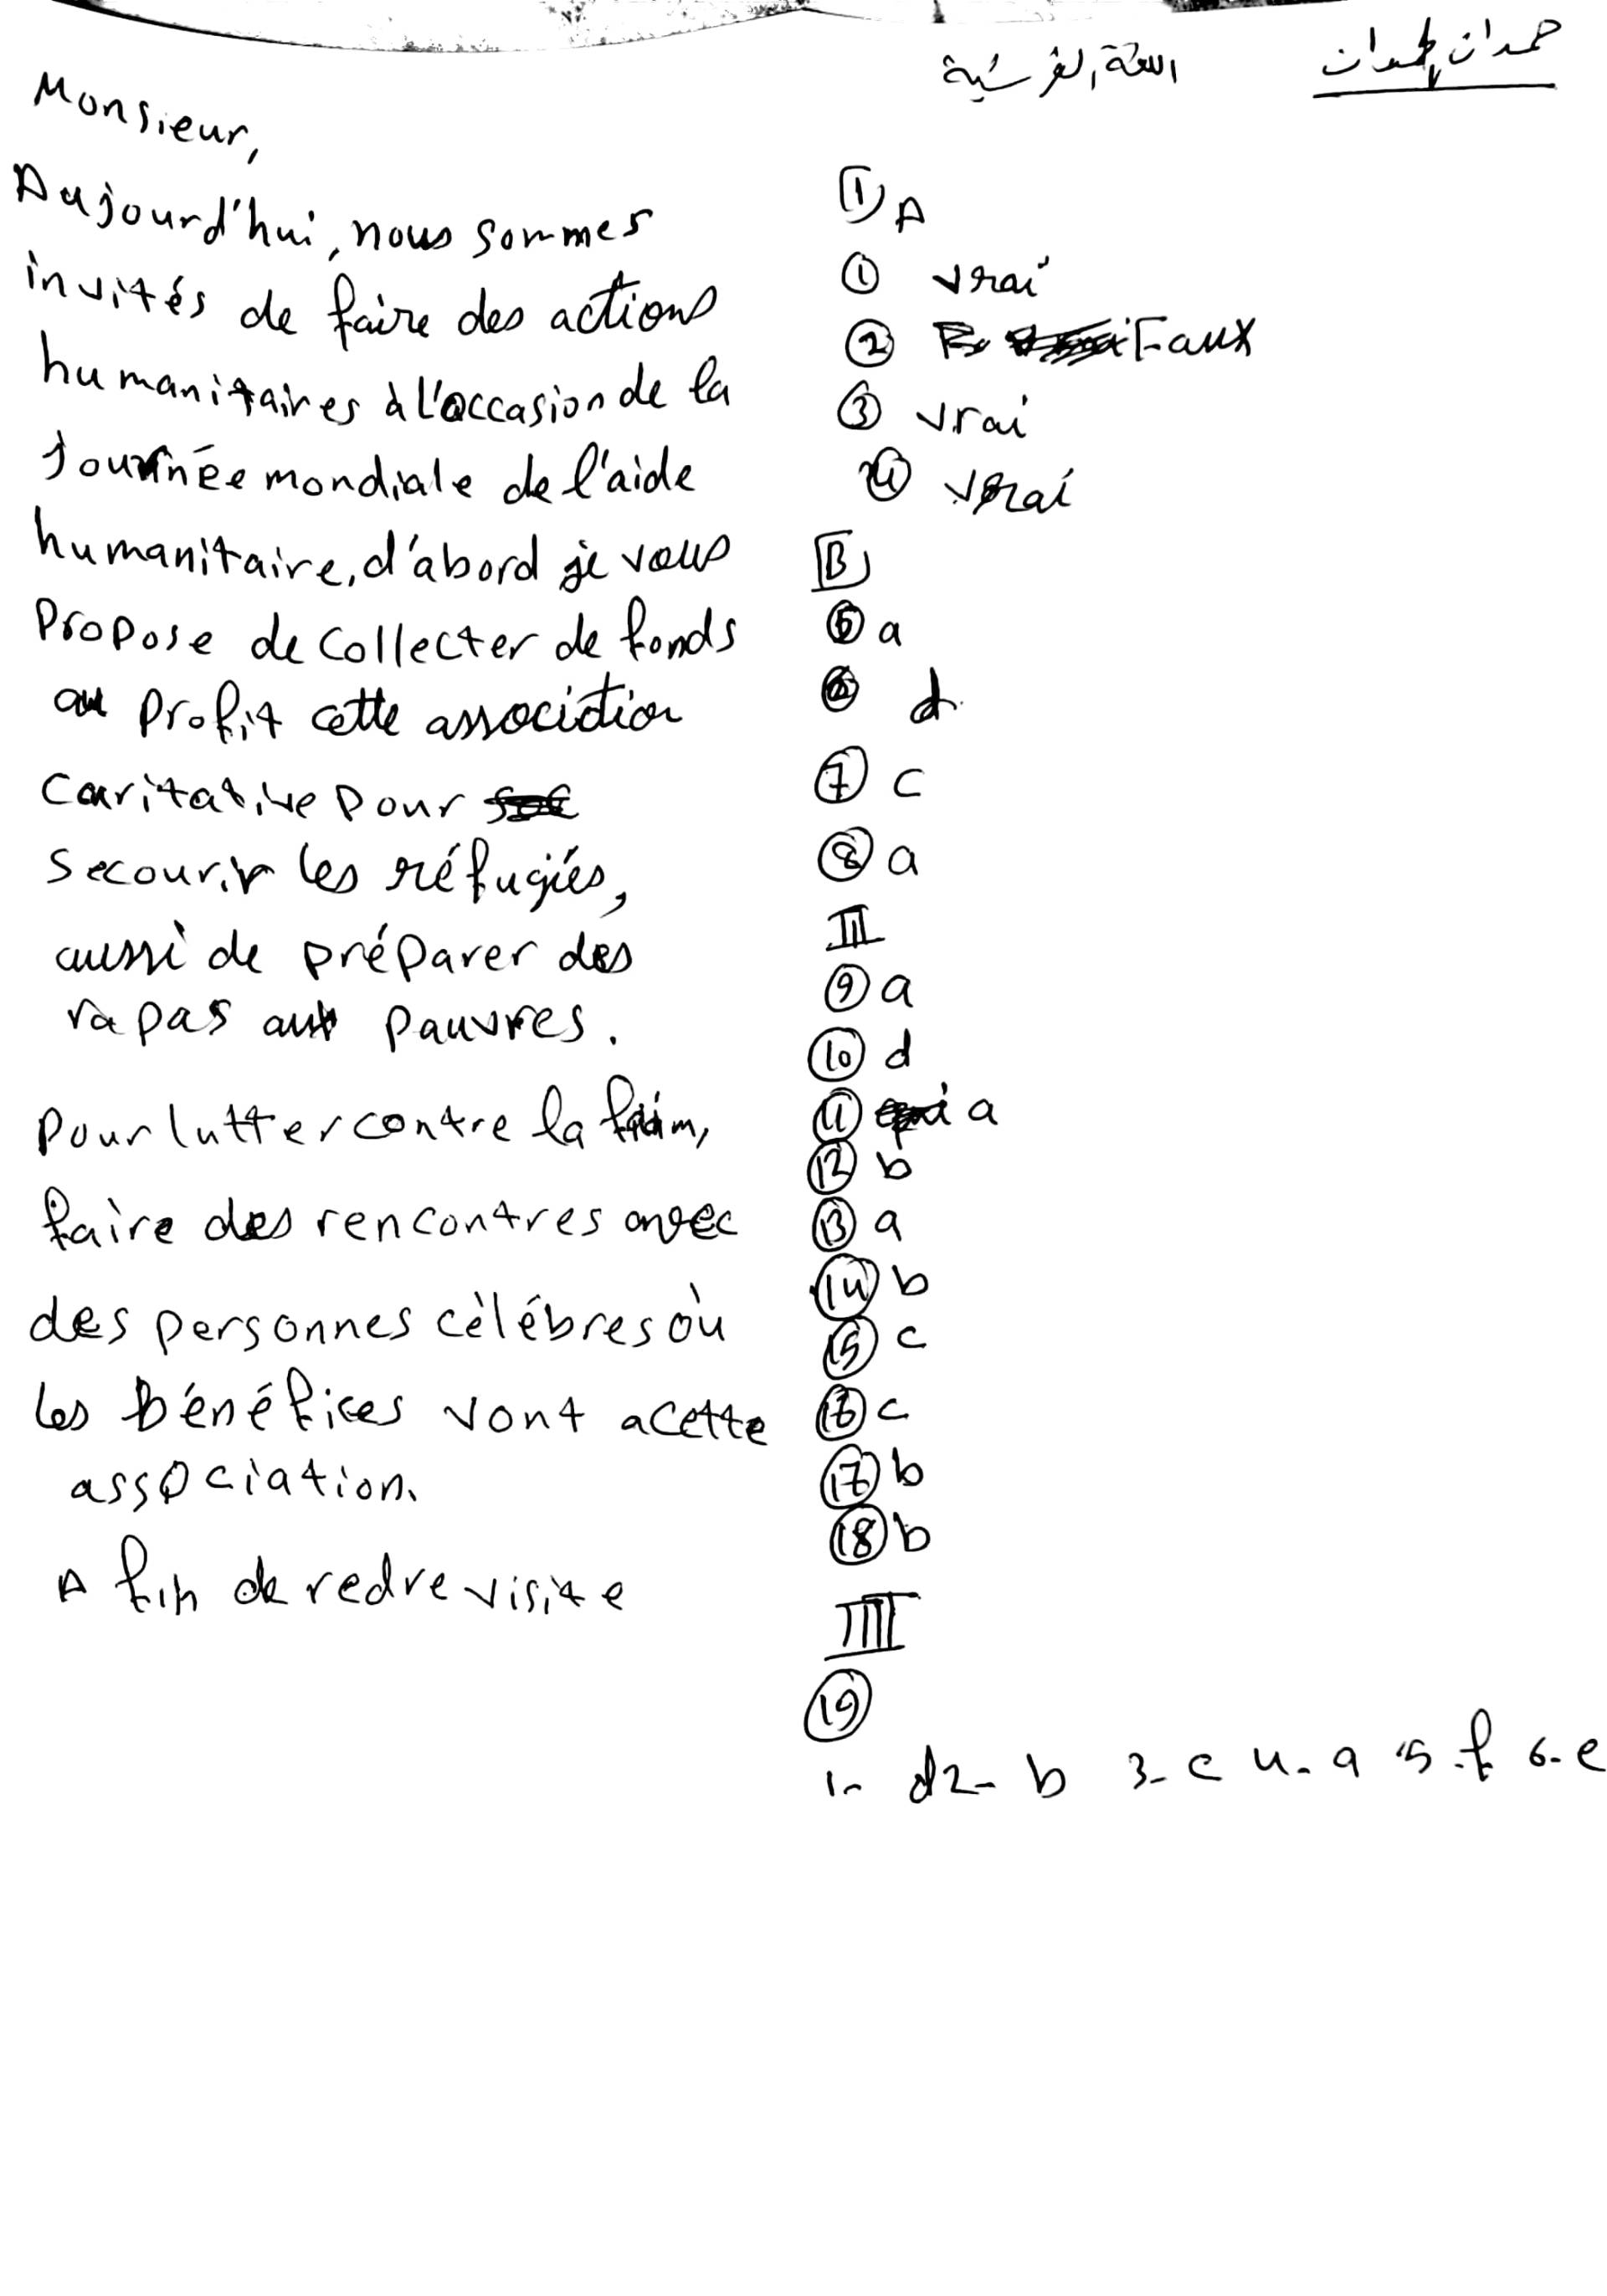 حمدان الحمدان
اللغة الفرنسية
I A
1 vrai
2 Faux
3 vrai
4 vrai
B
5 a
6 d
7 c
8 a
II
9 a
10 d
11 a
12 b
13 a
14 b
15 c
16 c
17 b
18 b
III
19
1- d 2- b 3- c 4- a 5- f 6- e
Monsieur,
Aujourd'hui, nous sommes
invités de faire des actions
humanitaires à l'occasion de la
Journée mondiale de l'aide
humanitaire, d'abord je vous
propose de collecter de fonds
au profit cette association
caritative pour
secourir les réfugiés,
aussi de préparer des
rapas aux pauvres.
pour lutter contre la faim,
faire des rencontres avec
des personnes cèlébres où
les bénéfices vont a cette
association.
A fin de redre visite